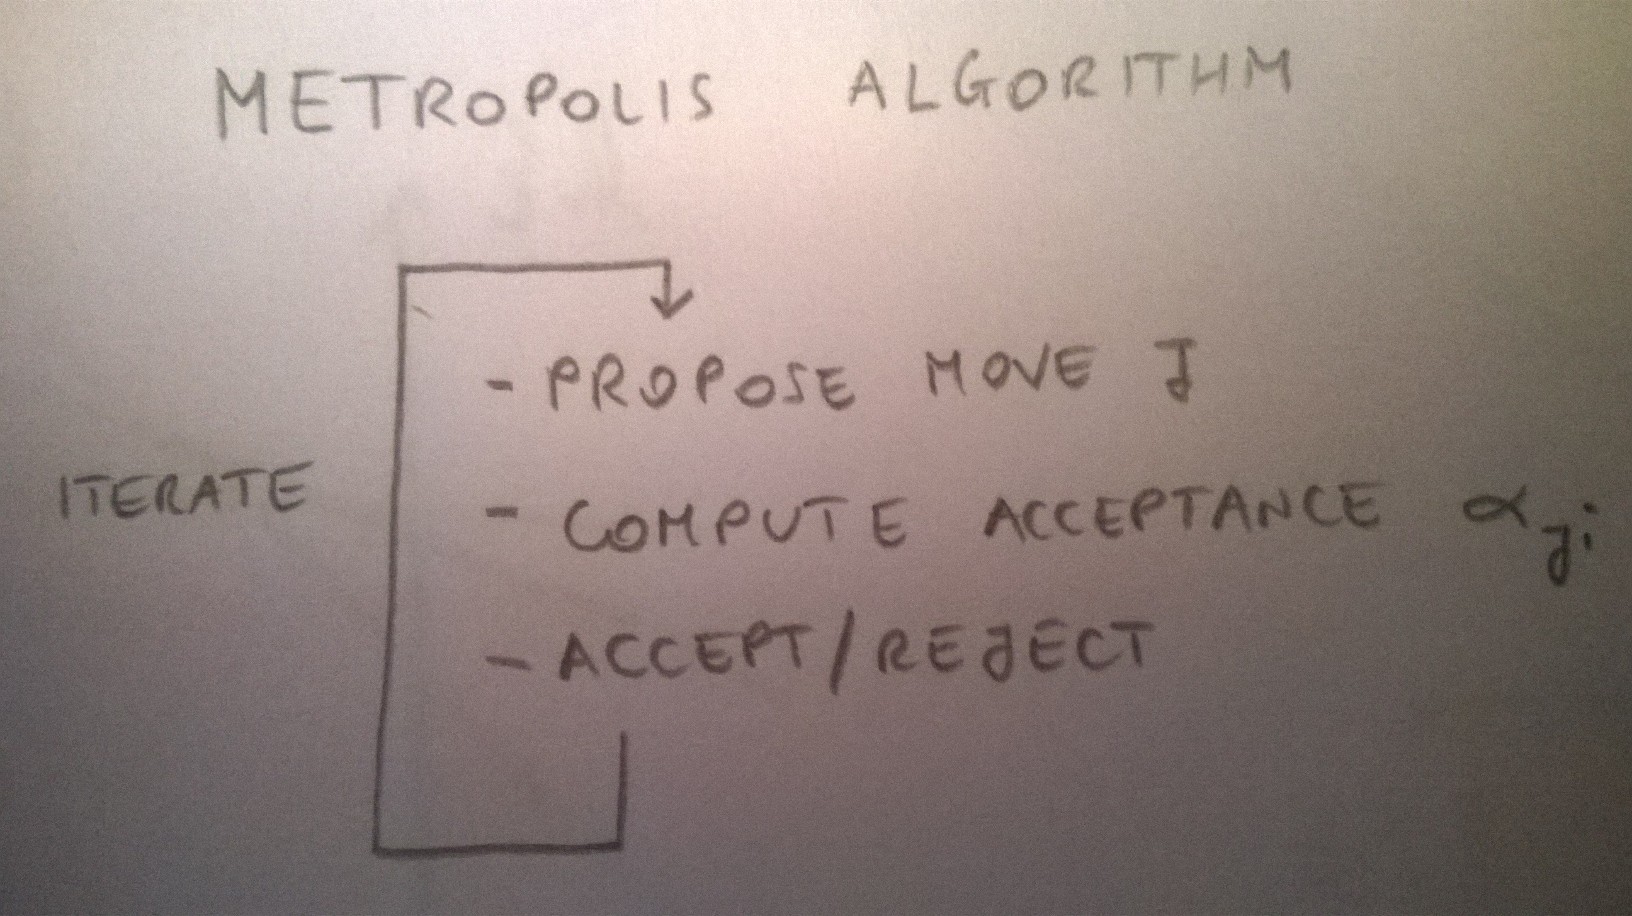 METROPOLIS ALGORITHM
- PROPOSE MOVE J
ITERATE
- COMPUTE ACCEPTANCE α_ji
- ACCEPT/REJECT